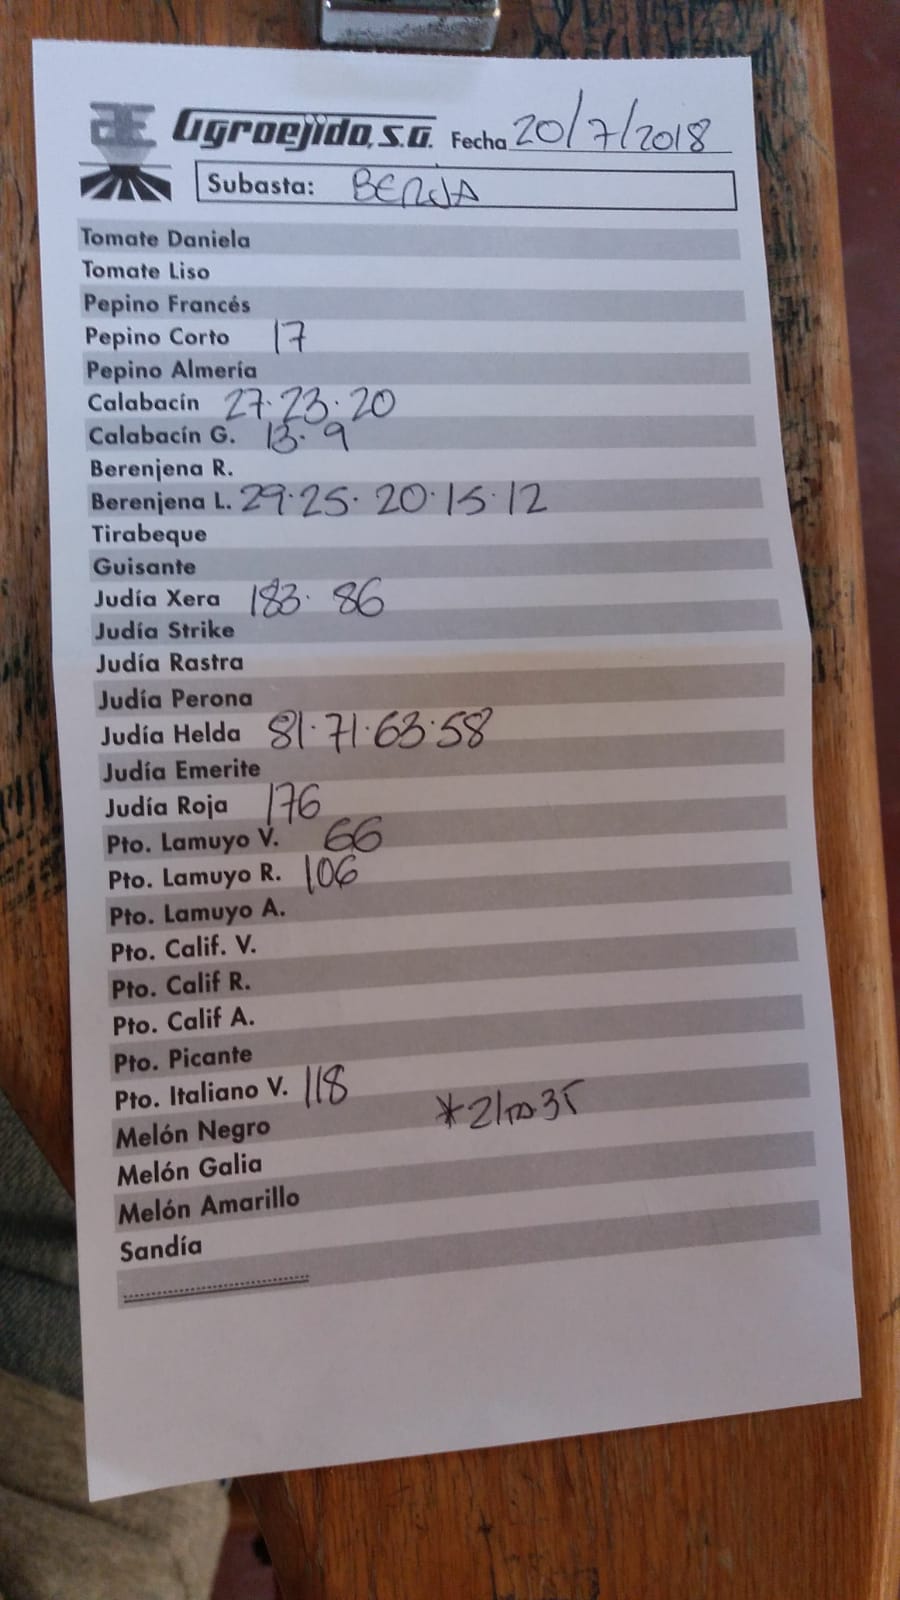 Agroejido, S.A. Fecha 20/7/2018
Subasta: BERJA
Tomate Daniela
Tomate Liso
Pepino Francés
Pepino Corto 17
Pepino Almería
Calabacín 27·23·20
Calabacín G. 13·9
Berenjena R.
Berenjena L. 29·25·20·15·12
Tirabeque
Guisante
Judía Xera 183· 86
Judía Strike
Judía Rastra
Judía Perona
Judía Helda 81·71·63·58
Judía Emerite
Judía Roja 176
Pto. Lamuyo V. 66
Pto. Lamuyo R. 106
Pto. Lamuyo A.
Pto. Calif. V.
Pto. Calif R.
Pto. Calif A.
Pto. Picante
Pto. Italiano V. 118
Melón Negro
Melón Galia
Melón Amarillo
Sandía